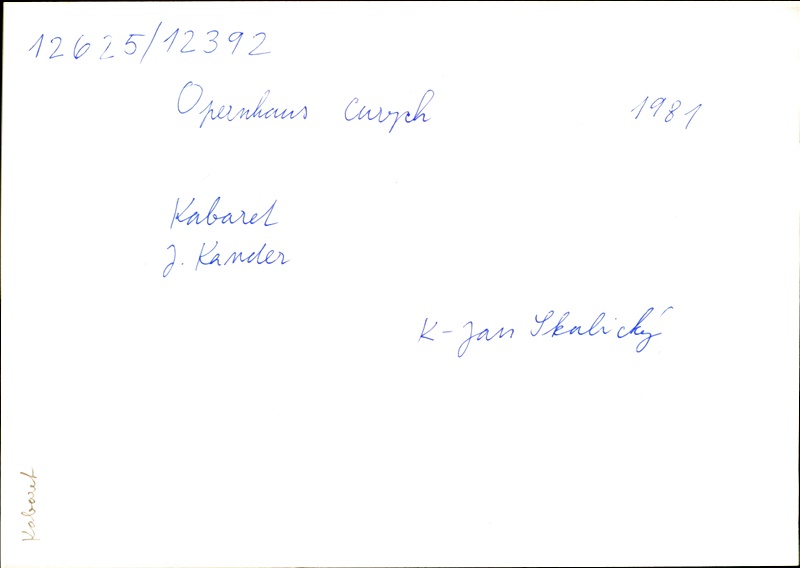 12625/12392
Opernhaus Curych 1981
Kabaret
J. Kander
K - Jan Skalický
Kabaret